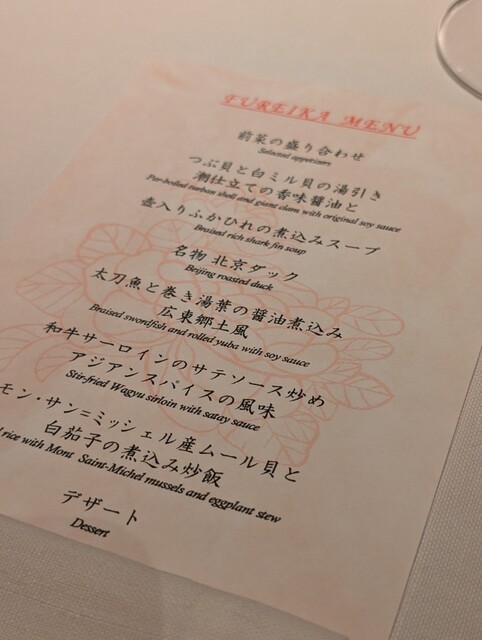 FUREIKA MENU
前菜の盛り合わせ
Selected appetizers
つぶ貝と白ミル貝の湯引き
潮仕立ての香味醤油と
Par-boiled turban shell and giant clam with original soy sauce
壺入りふかひれの煮込みスープ
Braised rich shark fin soup
名物 北京ダック
Beijing roasted duck
太刀魚と巻き湯葉の醤油煮込み
広東郷土風
Braised swordfish and rolled yuba with soy sauce
和牛サーロインのサテソース炒め
アジアンスパイスの風味
Stir-fried Wagyu sirloin with satay sauce
モン・サン=ミッシェル産ムール貝と
白茄子の煮込み炒飯
rice with Mont Saint-Michel mussels and eggplant stew
デザート
Dessert